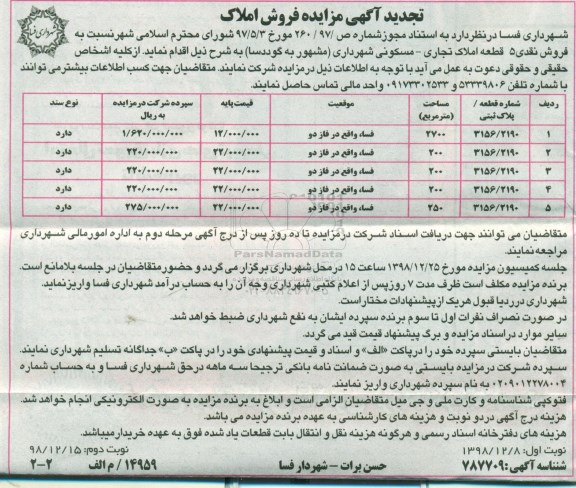 تجدید آگهی مزایده فروش املاک
شهرداری فسا
شهرداری فسا درنظردارد به استناد مجوزشماره ص /۹۷ / ۲۶۰ مورخ ۹۷/۵/۳ شورای محترم اسلامی شهرنسبت به
فروش نقدی۵ قطعه املاک تجاری - مسکونی شهرداری (مشهور به گودرسا) به شرح ذیل اقدام نماید. ازکلیه اشخاص
حقیقی و حقوقی دعوت به عمل می آید با توجه به اطلاعات ذیل درمزایده شرکت نمایند. متقاضیان جهت کسب اطلاعات بیشترمی توانند
با شماره تلفن ۵۳۳۳۹۸۰۶ و۰۹۱۷۳۳۰۲۵۳۳ واحد مالی تماس حاصل نمایند.
ردیف شماره قطعه / پلاک ثبتی مساحت (مترمربع) موقعیت قیمت پایه سپرده شرکت درمزایده به ریال نوع سند
۱ ۳۱۵۶/۲۱۹۰ ۲۷۰۰ فسا، واقع در فاز دو ۱۲/۰۰۰/۰۰۰ ۱/۶۲۰/۰۰۰/۰۰۰ دارد
۲ ۳۱۵۶/۲۱۹۰ ۲۰۰ فسا، واقع در فاز دو ۲۲/۰۰۰/۰۰۰ ۲۲۰/۰۰۰/۰۰۰ دارد
۳ ۳۱۵۶/۲۱۹۰ ۲۰۰ فسا، واقع در فاز دو ۲۲/۰۰۰/۰۰۰ ۲۲۰/۰۰۰/۰۰۰ دارد
۴ ۳۱۵۶/۲۱۹۰ ۲۰۰ فسا، واقع در فاز دو ۲۲/۰۰۰/۰۰۰ ۲۲۰/۰۰۰/۰۰۰ دارد
۵ ۳۱۵۶/۲۱۹۰ ۲۵۰ فسا، واقع در فاز دو ۲۲/۰۰۰/۰۰۰ ۲۷۵/۰۰۰/۰۰۰ دارد
متقاضیان می توانند جهت دریافت اسناد شرکت درمزایده تا ده روز پس از درج آگهی مرحله دوم به اداره امورمالی شهرداری
مراجعه نمایند.
ParsNamadData
جلسه کمیسیون مزایده مورخ ۱۳۹۸/۱۲/۲۵ ساعت ۱۵ درمحل شهرداری برگزار می گردد و حضورمتقاضیان در جلسه بلامانع است.
برنده مزایده مکلف است ظرف مدت ۷ روزپس از اعلام کتبی شهرداری وجه آن را به حساب درآمد شهرداری فسا واریزنماید.
شهرداری دررد یا قبول هریک ازپیشنهادات مختاراست.
در صورت نصراف نفرات اول تا سوم برنده سپرده ایشان به نفع شهرداری ضبط خواهد شد.
سایر موارد دراسناد مزایده و برگ پیشنهاد قیمت قید می گردد.
متقاضیان بایستی سپرده خود را درپاکت «الف» و اسناد و قیمت پیشنهادی خود را در پاکت «ب» جداگانه تسلیم شهرداری نمایند.
سپرده شرکت درمزایده بایستی به صورت ضمانت نامه بانکی ترجیحا سه ماهه درحق شهرداری فسا و به حساب شماره
۰۲۰۹۰۱۲۲۷۸۰۰۴ به نام سپرده شهرداری واریز نمایند.
فتوکپی شناسنامه و کارت ملی و جی میل متقاضیان الزامی است و ابلاغ به برنده مزایده به صورت الکترونیکی انجام خواهد شد.
هزینه درج آگهی دردو نوبت و هزینه های کارشناسی به عهده برنده مزایده می باشد.
هزینه های دفترخانه اسناد رسمی و هرگونه هزینه نقل و انتقال بابت قطعات یاد شده فوق به عهده خریدارمیباشد.
نوبت اول: ۱۳۹۸/۱۲/۸ نوبت دوم: ۹۸/۱۲/۱۵
شناسه آگهی: ۷۸۷۷۰۹ حسن برات - شهردار فسا ۱۴۹۵۹ / م الف ۲-۲